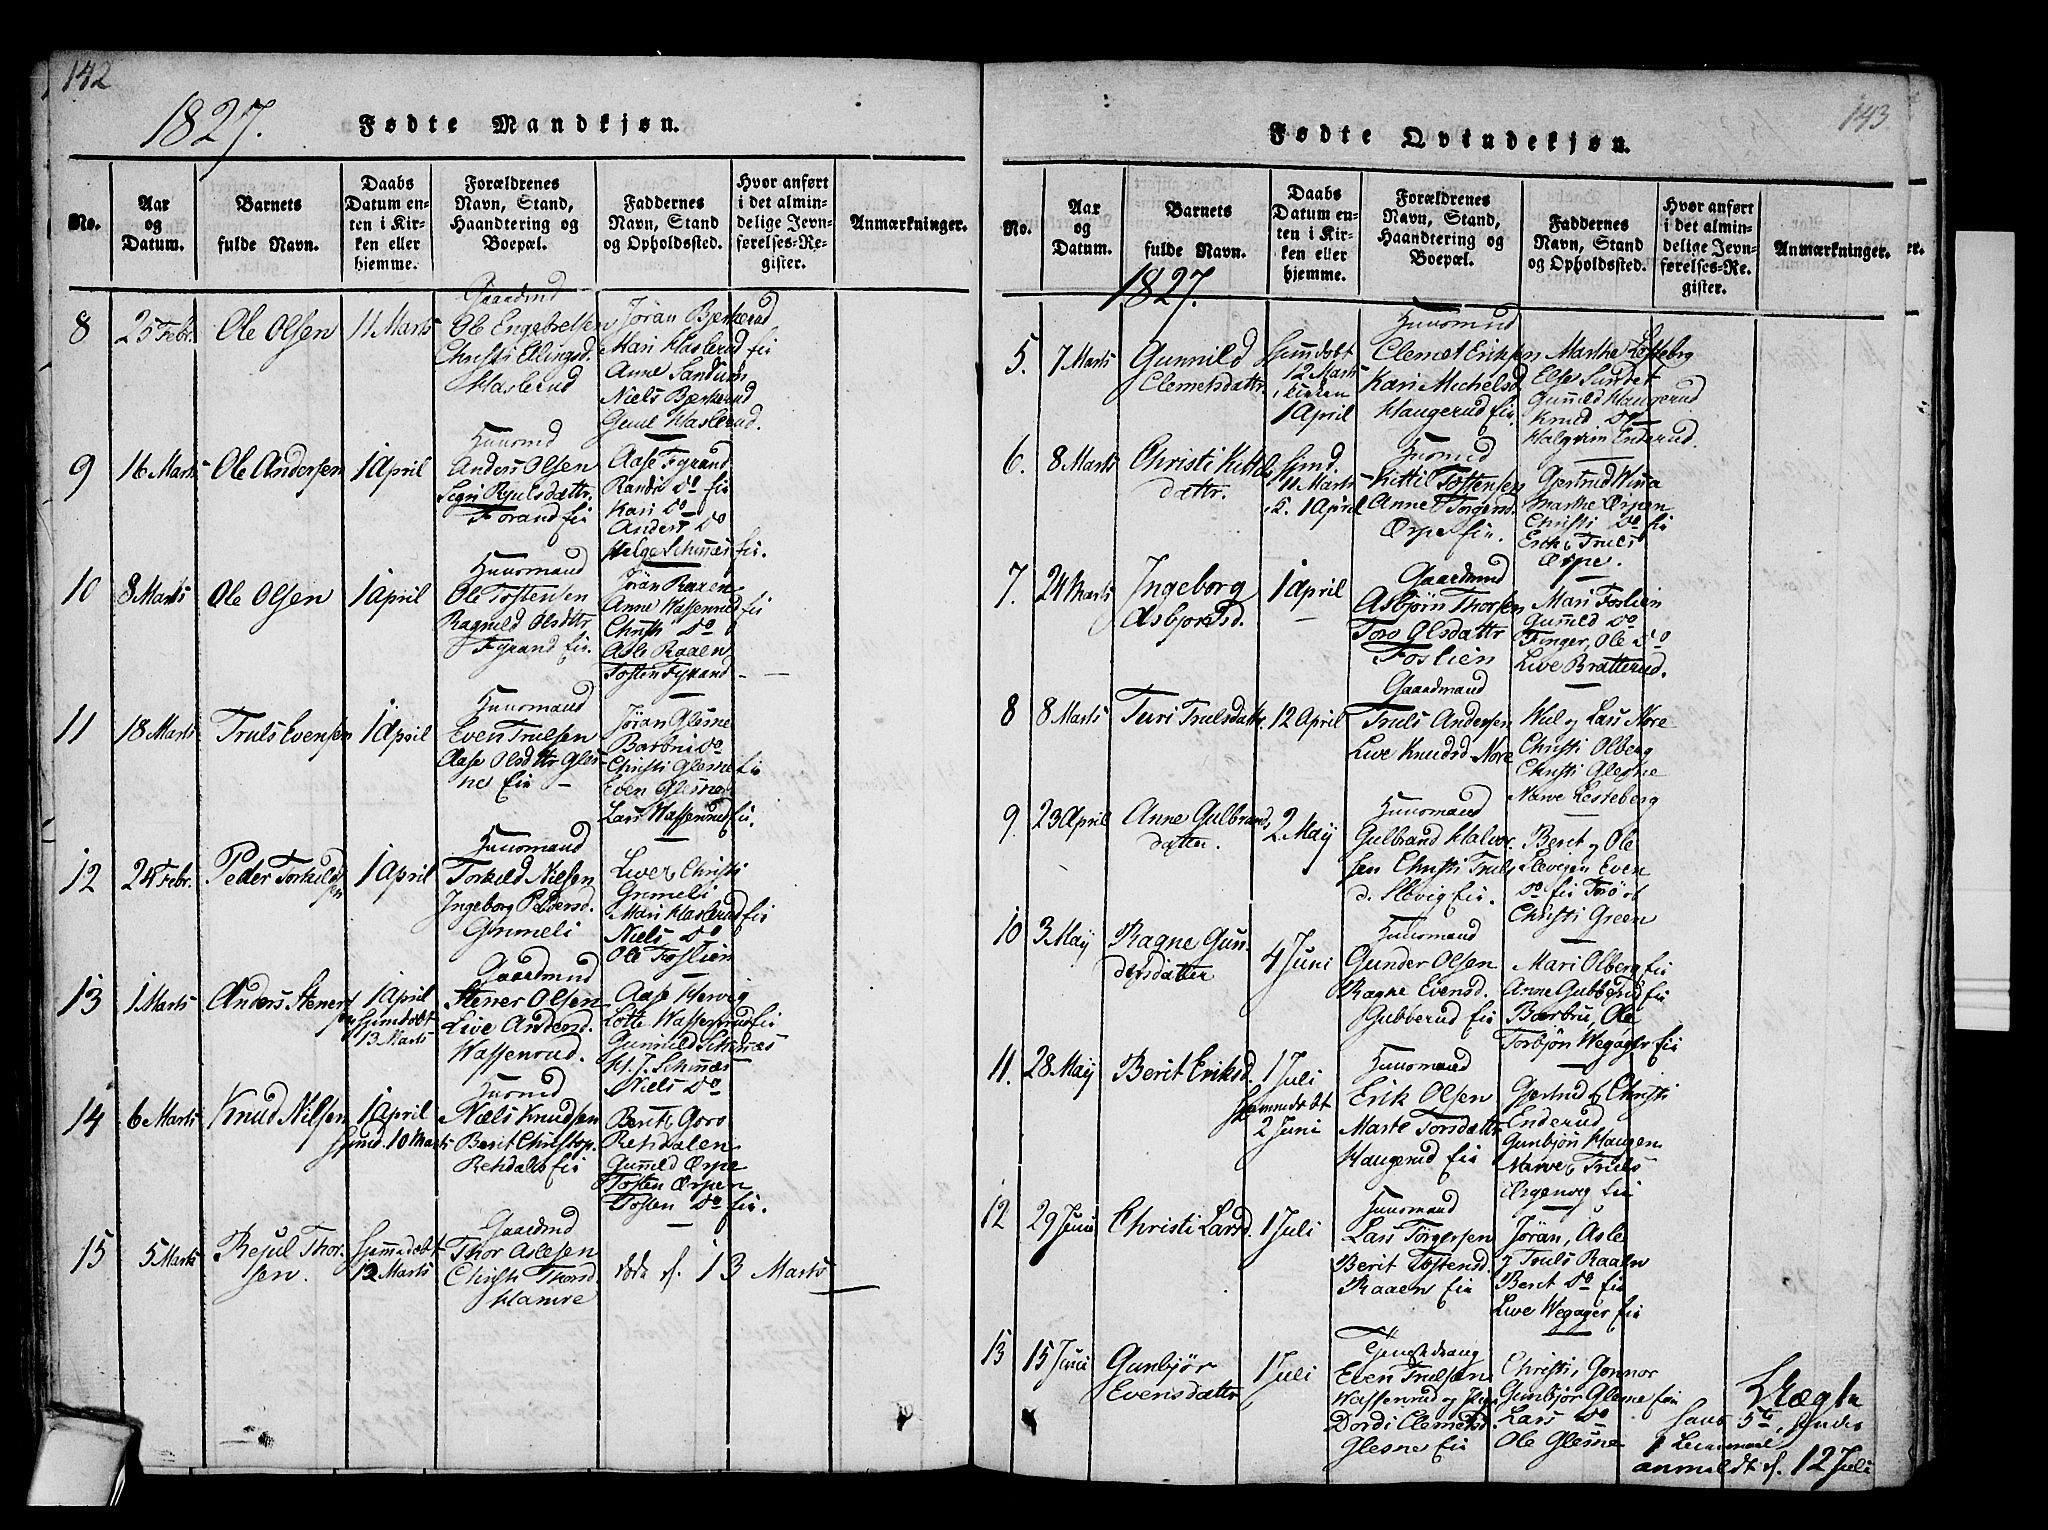 142
1827.
Fødte Mandkjøn.
No.
Aar
og
Datum.
Barnets
fulde Navn.
Daabs
Datum en-
ten i Kir-
ken eller
hjemme.
Forældrenes
Navn, Stand,
Haandtering og
Boepæl.
Faddernes
Navn, Stand
og Opholdssted.
Hvor anført
i det almin-
delige Jevn-
førelses-Re-
gister.
Anmærkninger.
8
25 Febr.
Ole Olsen
11 Marts
Gaardmd
Ole Engebretsen
Christi Elingsd.
Haslerud
Jöran Bjerkerud
Mari Haslerud eie
Anne Sandum
Niels Bjerkerud
Haslerud.
9
16 Marts
Ole Andersen
1 April
Huusmd
Anders Olsen
Segri
eie
Aase Fyrand
Randi Do eie
Kari Do
Anders Do
Helge eie.
10
8 Marts
Ole Olsen
1 April
Huusmand
Ole Tostensen
Ragnild Olsdttr
Fyrand eie.
Jöran Raaen
Anne eie
Christi Do
Asle Raaen
Tosten Fyrand
11
18 Marts
Truls Evensen
1 April
Huusmand
Even Trulsen
Aase Olsdttr Gles-
ne eie
Jöran Glesne
Barbru Do
Christi Glesne eie
Even Glesne
Lars Wassenrud eie.
12
24 Febr.
Peder Torkild
sen
1 April
Huusmand
Torkild Nielsen
Ingeborg Pedersd.
Grimeli
Live, Christi
Grimeli
Mari Haslerud eie
Niels Do
Ole Foslien
13
1 Marts
Anders Stener
sen
1 April
Hjemdöbt
13 Marts
Gaardmd
Stener Olsen
Live Andersd.
Wassenrud.
Aase Hervig
Lotte Wassenrud eie
Gunnild
Niels Do
14
6 Marts
Knud Nilsen
1 April
hjemd. 10 Marts
Huusmd
Niels Knudsen
Berit Christop.
Rehdalen eie
Berit, Goro
Rehdalen
Gunild Ørpe
Tosten Ørpen
Tosten Do eie.
15
5 Marts
Thor-
sen.
Hjemmedöbt
12 Marts
Gaardmd
Thor Aslesen
Christi Thorsd.
Hamre
döde d. 13 Marts
143
Fødte Qvindekjøn.
No.
Aar
og
Datum.
Barnets
fulde Navn.
Daabs
Datum en-
ten i Kir-
ken eller
hjemme.
Forældrenes
Navn, Stand,
Haandtering og
Boepæl.
Faddernes
Navn, Stand
og Opholdssted.
Hvor anført
i det almin-
delige Jevn-
førelses-Re-
gister.
Anmærkninger.
1827.
5.
7 Marts
Gunnild
Clemetsdattr.
hjemdöbt
12 Marts
i kirken
1 April
Huusmd
Clemet Eriksen
Kari Michelsd.
Haugerud eie.
Marthe Lesteberg
Else Sundet
Gunnild Haugerud
Knud Do
Halgrim Enderud.
6.
8 Marts
Christi Kittels
dattr.
hjmd.
11 Marts
k. 1 April
Huusmd
Kittil Tostensen
Anne Torgersd.
Ørpe eie.
Gertrud
Marthe Ørpen
Christi Do eie
Erik, Truls
Ørpe.
7.
24 Marts
Ingeborg
Asbjornsd.
1 April
Gaardmd
Asbjörn Thorsen
Toro Olsdattr
Foslien
Mari Foslien
Gunnild Do
Finger, Ole Do
Live Bratterud.
8
8 Marts
Turi Trulsdattr
12 April
Gaardmand
Truls Andersen
Live Knudsd Nore
Lars Nore
Christi Olberg
Christi Glesne
Narve Lesteberg
9.
23 April
Anne Gulbrands
datter.
2 Maÿ
Huusmand
Gulbrand Halvor
sen Christi Truls
d. Slevig eie.
Berit og Ole
Slevigen Even
Do eie
Christi Green
10
3 Maÿ
Ragne Gun-
dersdatter
4 Juni
Huusmand
Gunder Olsen
Ragne Evensd.
Gubberud eie
Mari Olberg eie
Anne Gubberud eie
Barbru, Ole
Torbjön Wegager eie
11.
28 Maÿ
Berit Eriksd.
1 Juli
hjemmedöbt
2 Juni
Huusmand
Erik Olsen
Marte Torsdattr
Haugerud eie
Gjertrud, Christi
Enderud
Gunbjön Haugen
Narve, Truls
eie
12
29 Juni
Christi Larsd.
1 Juli
Huusmand
Lars Törgersen
Berit Tostensd.
Raaen eie
Jöran, Asle
og Truls Raaen
Berit Do eie
Live Wegager eie
13
15 Juni
Gunbjör
Evensdattr
1 Juli
Even Trulsen
Wassenrud og Pige
Dordi Clemetsd.
Glesne eie
Christi, Gonnor
Gunbjör Glesne eie
Lars Do
Ole Glesne
anmeldt d. 12 Juli